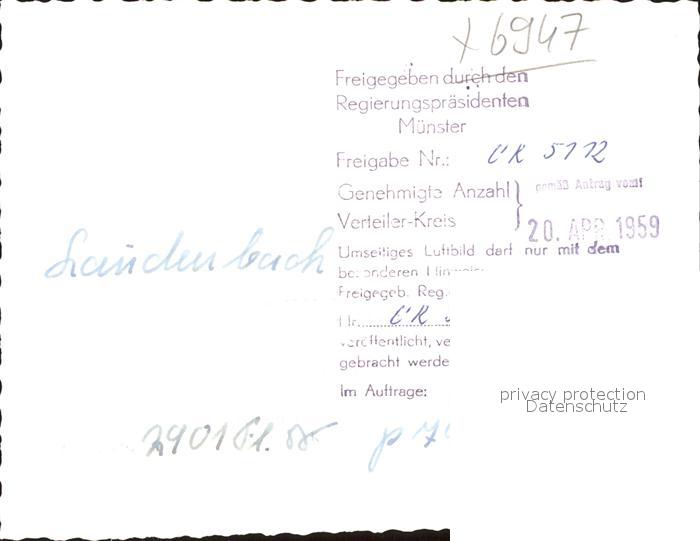 x 6947
Freigegeben durch den
Regierungspräsidenten
Münster
Freigabe Nr.: CK 5112
Genehmigte Anzahl } gemäß Antrag vom
Verteiler-Kreis
20. APR 1959
Umseitiges Luftbild darf nur mit dem
besonderen Hinweis
Freigegeb. Reg.
Nr. CK
veröffentlicht, ve
gebracht werde
Im Auftrage:
Laudenbach
privacy protection
Datenschutz